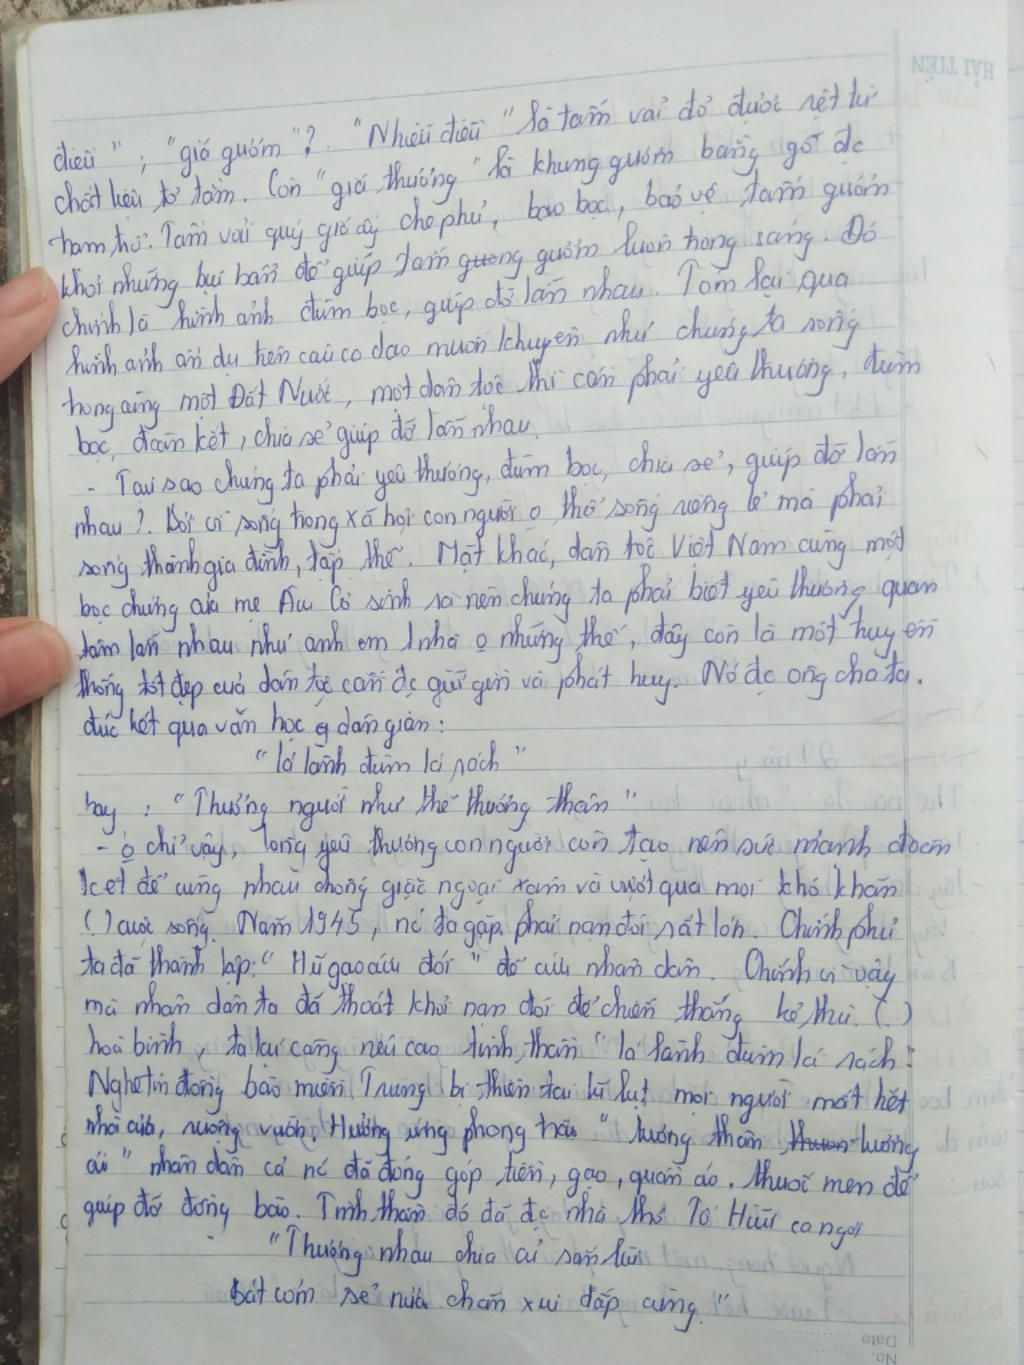 điều" ; "giá gương"?. "Nhiễu điều" là tấm vải đỏ được dệt từ
chất liệu tơ tằm. Còn "giá thương" là khung gương bằng gỗ đc
trạm, trổ. Tấm vải quý giá ấy che phủ, bao bọc, bảo vệ tấm gương
khỏi những bụi bẩn để giúp tấm gương luôn trong sáng. Đó
chính là hình ảnh đùm bọc, giúp đỡ lẫn nhau. Tóm lại, qua
hình ảnh ẩn dụ trên câu ca dao muốn khuyên như chúng ta sống
trong cùng một Đất Nước, một dân tộc thì cần phải yêu thương, đùm
bọc, đoàn kết, chia sẻ giúp đỡ lẫn nhau.
- Tại sao chúng ta phải yêu thương, đùm bọc, chia sẻ, giúp đỡ lẫn
nhau?. Bởi vì sống trong xã hội con người o thể sống riêng lẻ mà phải
sống thành gia đình, tập thể. Mặt khác, dân tộc Việt Nam cùng một
bọc chứng của mẹ Âu Cơ sinh ra nên chúng ta phải biết yêu thương quan
tâm lẫn nhau như anh em 1 nhà o những thế, đây còn là một truyền
thống tốt đẹp của dân tộc cần đc giữ gìn và phát huy. Nó đc ông cha ta.
đúc kết qua văn học dân gian:
"lá lành đùm lá rách"
hay : "Thương người như thể thương thân"
- o chỉ vậy, lòng yêu thương con người còn tạo nên sức mạnh đoàn
kết để cùng nhau chống giặc ngoại xâm và vượt qua mọi khó khăn
( ) cuộc sống. Năm 1945, nc ta gặp phải nạn đói rất lớn. Chính phủ
ta đã thành lập: "Hũ gạo cứu đói" để cứu nhân dân. Chính vì vậy
mà nhân dân ta đã thoát khỏi nạn đói để chiến thắng kẻ thù. (.)
hoà bình, ta lại càng nêu cao tinh thần "lá lành đùm lá rách".
Nghe tin đồng bào miền Trung bị thiên tai lũ lụt mọi người mất hết
nhà cửa, ruộng vườn. Hưởng ứng phong trào "tương thân tương
ái" nhân dân cả nc đã đóng góp tiền, gạo, quần áo, thuốc men để
giúp đỡ đồng bào. Tinh thần đó đã đc nhà thơ Tố Hữu ca ngợi
"Thương nhau chia củ sắn lùi
Bát cơm sẻ nửa chăn xui đắp cùng."
HẢI TIẾN
No.
Date